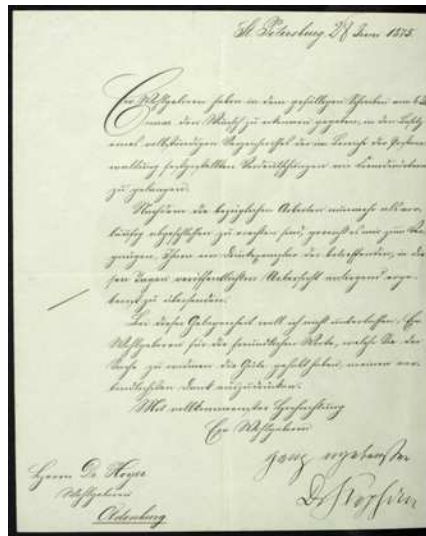 St. Petersburg, 28 Juni 1875.
Ew. Wohlgeboren haben in dem gefälligen Schreiben vom
den Wunsch zu erkennen gegeben, in den Besitz
eines vollständigen Verzeichnisses der im Bereiche der Postver-
waltung festgestellten Verdeutschungen von Fremdwörtern
zu gelangen.
Nachdem die bezüglichen Arbeiten nunmehr als vor-
läufig abgeschlossen zu erachten sind, gereicht es mir zum Ver-
gnügen, Ihnen ein Druckexemplar der betreffenden, in die-
sen Tagen veröffentlichten Uebersicht anliegend erge-
benst zu übersenden.
Bei dieser Gelegenheit will ich nicht unterlassen, Ew.
Wohlgeboren für die freundlichen Worte, welche Sie der
Sache zu widmen die Güte gehabt haben, meinen ver-
bindlichsten Dank auszudrücken.
Mit vollkommenster Hochachtung
Ew. Wohlgeboren
ganz ergebenster
Dr Stephan
Herrn Dr.
Wohlgeboren
Oldenburg